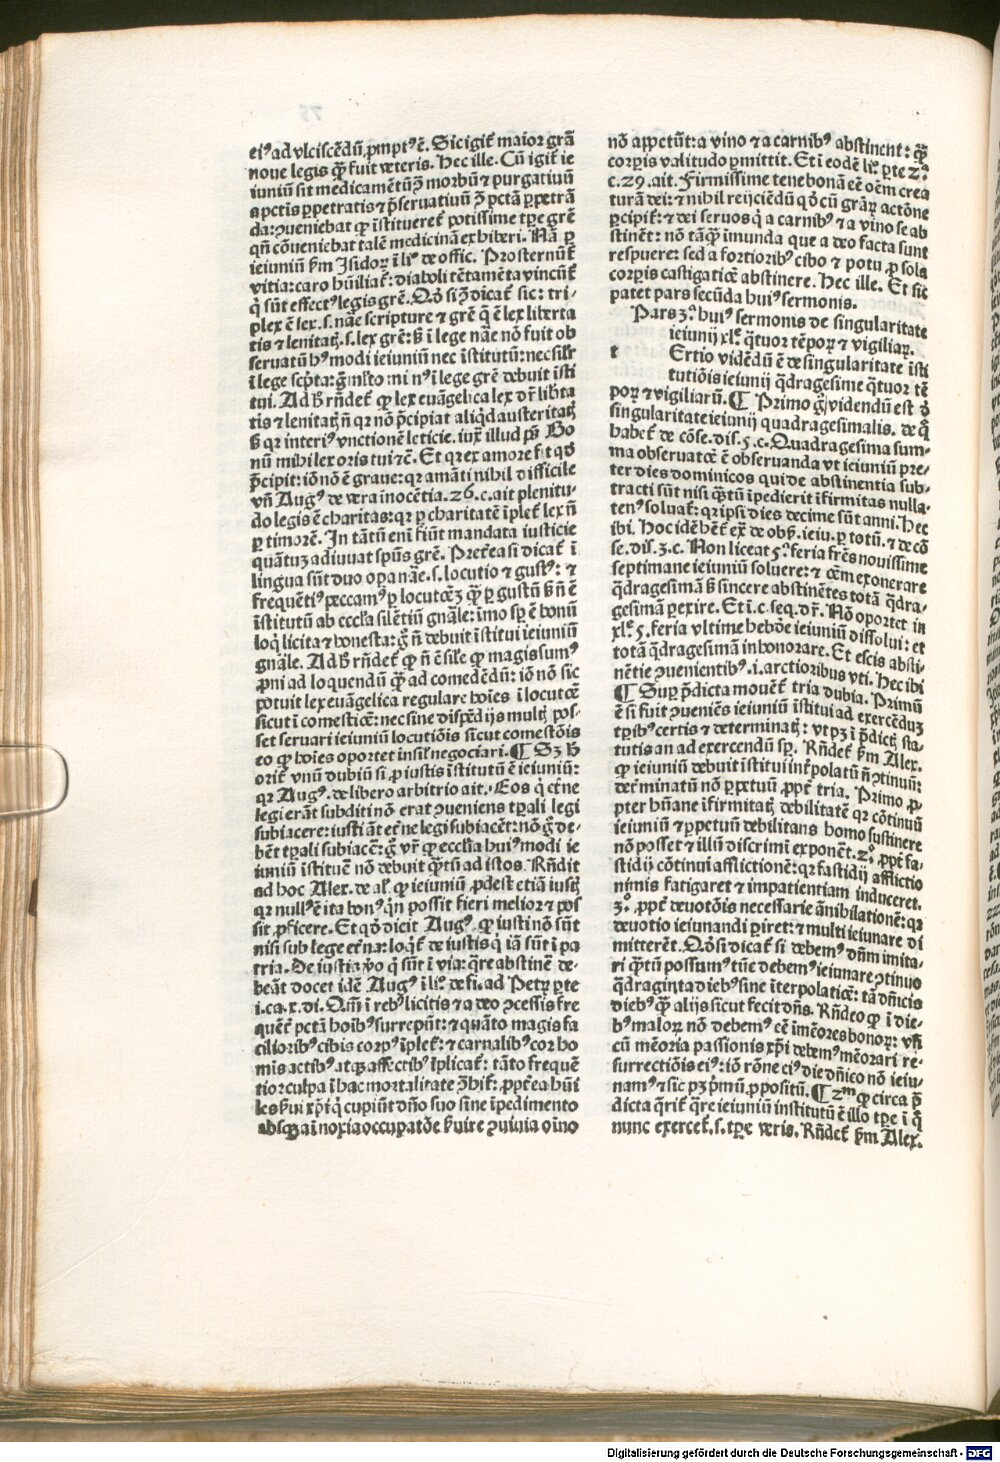 eiꝰ ad vlciscēdū ꝓmptꝰ ē. Sic igit᷑ maior gr̄a
noue legis qͣꝫ fuit veteris. Hec ille. Cū igit᷑ ie
iuniū sit medicamētū ↄ̄ morbū ⁊ purgatiuū
a pctīs ꝑpetratis ⁊ p̄seruatiuū ↄ̄ pctā ꝑpetrā
da: ↄueniebat ꝙ īstitueret᷑ potissime tꝑe grē
qn̄ cōueniebat talē medicinā exhiberi. Nā ꝑ
ieiuniū ẜm Isidoꝝ ī liͦ de offic. Prosternūt᷑
vitia: caro hūiliat᷑: diaboli tētamēta vincūt᷑
q̄ sūt effectꝰ legis grē. Qō si ↄ̄ dicat᷑ sic: tri-
plex ē lex .s. nāe scripture ⁊ grē q̄ ē lex liberta
tis ⁊ lenitatꝭ .s. lex grē: ẜ ī lege nāe nō fuit ob
seruatū hꝰmodi ieiuniū nec īstitutū: nec sil'r
ī lege scp̄ta: g̊ ml̄to minꝰ ī lege grē debuit īsti
tui. Ad ħ rn̄det᷑ ꝙ lex euāgelica lex dr̄ lib̄ta
tis ⁊ lenitatꝭ n̄ qꝛ nō p̄cipiat aliqͥd austeritatꝭ
ẜ qꝛ interiꝰ vnctionē leticie. iux̄ illud pš Bo
nū mihi lex oris tui ⁊c̄. Et qꝛ ex amore fit qō
p̄cipit: iō nō ē graue: qꝛ amāti nihil difficile
vn̄ Augꝰ de vera inocētia .26. c. ait plenitu-
do legis ē charitas: qꝛ ꝑ charitatē īplet᷑ lex n̄
ꝑ timorē. In tātū eni fiūt mandata iusticie
quātuꝫ adiuuat spūs grē. Preťea si dicat᷑ ī
lingua sūt duo oꝑa nāe .s. locutio ⁊ gustꝰ: ⁊
frequētiꝰ peccamꝰ ꝑ locutōeꝫ qͣꝫ ꝑ gustū ẜ n̄ ē
īstitutū ab eccl'ia silētiū gnāle: īmo sꝑ ē bonū
loqͥ licita ⁊ honesta: g̊ n̄ debuit īstitui ieiuniū
gnāle. Ad ħ rn̄det᷑ ꝙ n̄ ē sil'e ꝙ magis sumꝰ
ꝓni ad loquendū qͣꝫ ad comedēdū: iō nō sic
potuit lex euāgelica regulare hoīes ī locutōe
sicut ī comestiōe: nec sine dispēdijs multꝭ pos-
set seruari ieiuniū locutiōis sicut comestōis
eo ꝙ hoīes oportet insil' negociari. ¶ Sꝫ ħ
orit᷑ vnū dubiū si ꝓ iustis īstitutū ē ieiuniū:
qꝛ Augꝰ. de libero arbitrio ait. Eos q̄ eťne
legi erāt subditi nō erat ↄueniens tꝑali legi
subiacere: iusti āt eťne legi subiacēt: nō g̊ de-
bēt tꝑali subiacē: g̊ vr̄ ꝙ eccl'ia huiꝰmodi ie
iuniū īstituē nō debuit qͣꝫtū ad istos. Rn̄dit
ad hoc Alex. de al' ꝙ ieiuniū ꝓdest etiā iustꝭ
qꝛ nullꝰ ē ita bonꝰ qn̄ possit fieri melior ⁊ pos
sit ꝓficere. Et qō dicit Augꝰ. ꝙ iusti nō sūt
nisi sub lege eťna: loqͥt᷑ de iustis qͥ iā sūt ī pa
tria. De iustis v̄o qͥ sūt ī via: q̄re abstinē de-
beāt docet idē Augꝰ ī liͦ. de fi. ad Petꝝ ꝑte
i. ca. x. di. Om̄ī ī rebꝰ licitis ⁊ a deo ↄcessis fre
quēt᷑ pctā hoībꝰ surrepūt: ⁊ quāto magis fa
cilioribꝰ cibis corpꝰ īplet᷑: ⁊ carnalibꝰ cor ho
mis actibꝰ atqꝫ affectibꝰ īplicat᷑: tāto frequē
tior culpa ī hac mortalitate ↄ̄hit᷑: ꝓpťea hūi
les ẜui xp̄i qͥ cupiūt dn̄o suo sine īpedimento
absqꝫ aī noxia occupatōe ẜuire ↄuiuia oīno
nō appetūt: a vino ⁊ a carnibꝰ abstinent: qͣꝫ
corꝑis valitudo ꝑmittit. Et ī eodē liͦ. ꝑte 2ª
c. 29. ait. Firmissime tene bonā eē oēm crea
turā dei: ⁊ nihil reijciēdū qō cū grāꝝ actōne
ꝑcipit᷑: ⁊ dei seruos qͥ a carnibꝰ ⁊ a vino se ab
stinēt: nō tāqͣꝫ īmunda que a deo facta sunt
respuere: sed a fortioribꝰ cibo ⁊ potu ꝓ sola
corꝑis castigatiōe abstinere. Hec ille. Et sic
patet pars secūda huiꝰ sermonis.
Pars 3ª. huiꝰ sermonis de singularitate
ieiunij xlᵉ. q̄tuor tēpoꝝ ⁊ vigiliaꝝ.
t Ertio vidēdū ē de singularitate īsti
tutiōis ieiunij q̄dragesime q̄tuor tē
poꝝ ⁊ vigiliarū. ¶ Primo g̊ videndū est ď
singularitate ieiunij quadragesimalis. de q̄
habet᷑ de cōse. dis. 5. c. Quadragesima sum-
ma obseruatōe ē obseruanda vt ieiuniū pre-
ter dies dominicos qui de abstinentia sub-
tracti sūt nisi qͣꝫtū īpedierit īfirmitas nulla-
tenꝰ soluat᷑: qꝛ ipsi dies decime sūt anni. Hec
ibi. Hoc idē het᷑ ex̄ de obẜ. ieiu. ꝑ totū. ⁊ de cō
se. dis. 3. c. Non liceat 5ª. feria fr̄es nouissime
septimane ieiuniū soluere: ⁊ oēm exonerare
q̄dragesimā ẜ sincere abstinētes totā q̄dra-
gesimā ꝑexire. Et ī. c. seq. dr̄. Nō oportet in
xlᵉ 5. feria vltime hebdōe ieiuniū dissolui: et
totā q̄dragesimā inhonorare. Et escis absti-
nētie ↄuenientibꝰ .i. arctioribus vti. Hec ibi
¶ Suꝑ p̄dicta mouēt᷑ tria dubia. Primū
ē si fuit ↄueniēs ieiuniū īstitui ad exercēduꝫ
tꝑibꝰ certis ⁊ determinatꝭ: vt pꝫ ī p̄dictꝭ sta-
tutis an ad exercendū sꝑ. Rn̄det᷑ ẜm Alex.
ꝙ ieiuniū debuit īstitui inť polatū n̄ ↄtinuū:
deťminatū nō ꝑpetuū ꝓpt᷑ tria. Primo ꝓ-
pter hūane īfirmitatꝭ debilitatē qꝛ cōtinuū
ieiuniū ⁊ ꝑpetuū debilitans homo sustinere
nō posset ⁊ illiū discrimī exponēt. 2º. ꝓpt᷑ fa-
stidij cōtinui afflictionē: qꝛ fastidij afflictio
nimis fatigaret ⁊ impatientiam induceret.
3º. ꝓpt᷑ deuotōis necessarie ānihilationē: qꝛ
deuotio ieiunandi ꝑiret: ⁊ multi ieiunare di
mitterēt. Qō si dicat᷑ si debemꝰ dn̄m imita-
ri qͣꝫtū possumꝰ tūc debemꝰ ieiunare ↄtinuo
q̄draginta diebꝰ sine īterpolatiōe: tā dn̄icis
diebꝰ qͣꝫ alijs sicut fecit dn̄s. Rn̄deo ꝙ ī die-
bꝰ maloꝝ nō debemꝰ eē īmēores bonoꝝ: vn̄
cū mēoria passionis xp̄i debemꝰ mēorari re-
surrectiōis eiꝰ: iō rōne eiꝰ die dn̄ico nō ieiu-
namꝰ ⁊ sic pꝫ p̄mū ꝓpositū. ¶ 2ᵐ ꝙ circa p̄
dicta q̄rit᷑ q̄re ieiuniū institutū ē illo tꝑe ī q̄
nunc exercet᷑ .s. tꝑe veris. Rn̄det᷑ ẜm Alex.
Digitalisierung gefördert durch die Deutsche Forschungsgemeinschaft - DFG